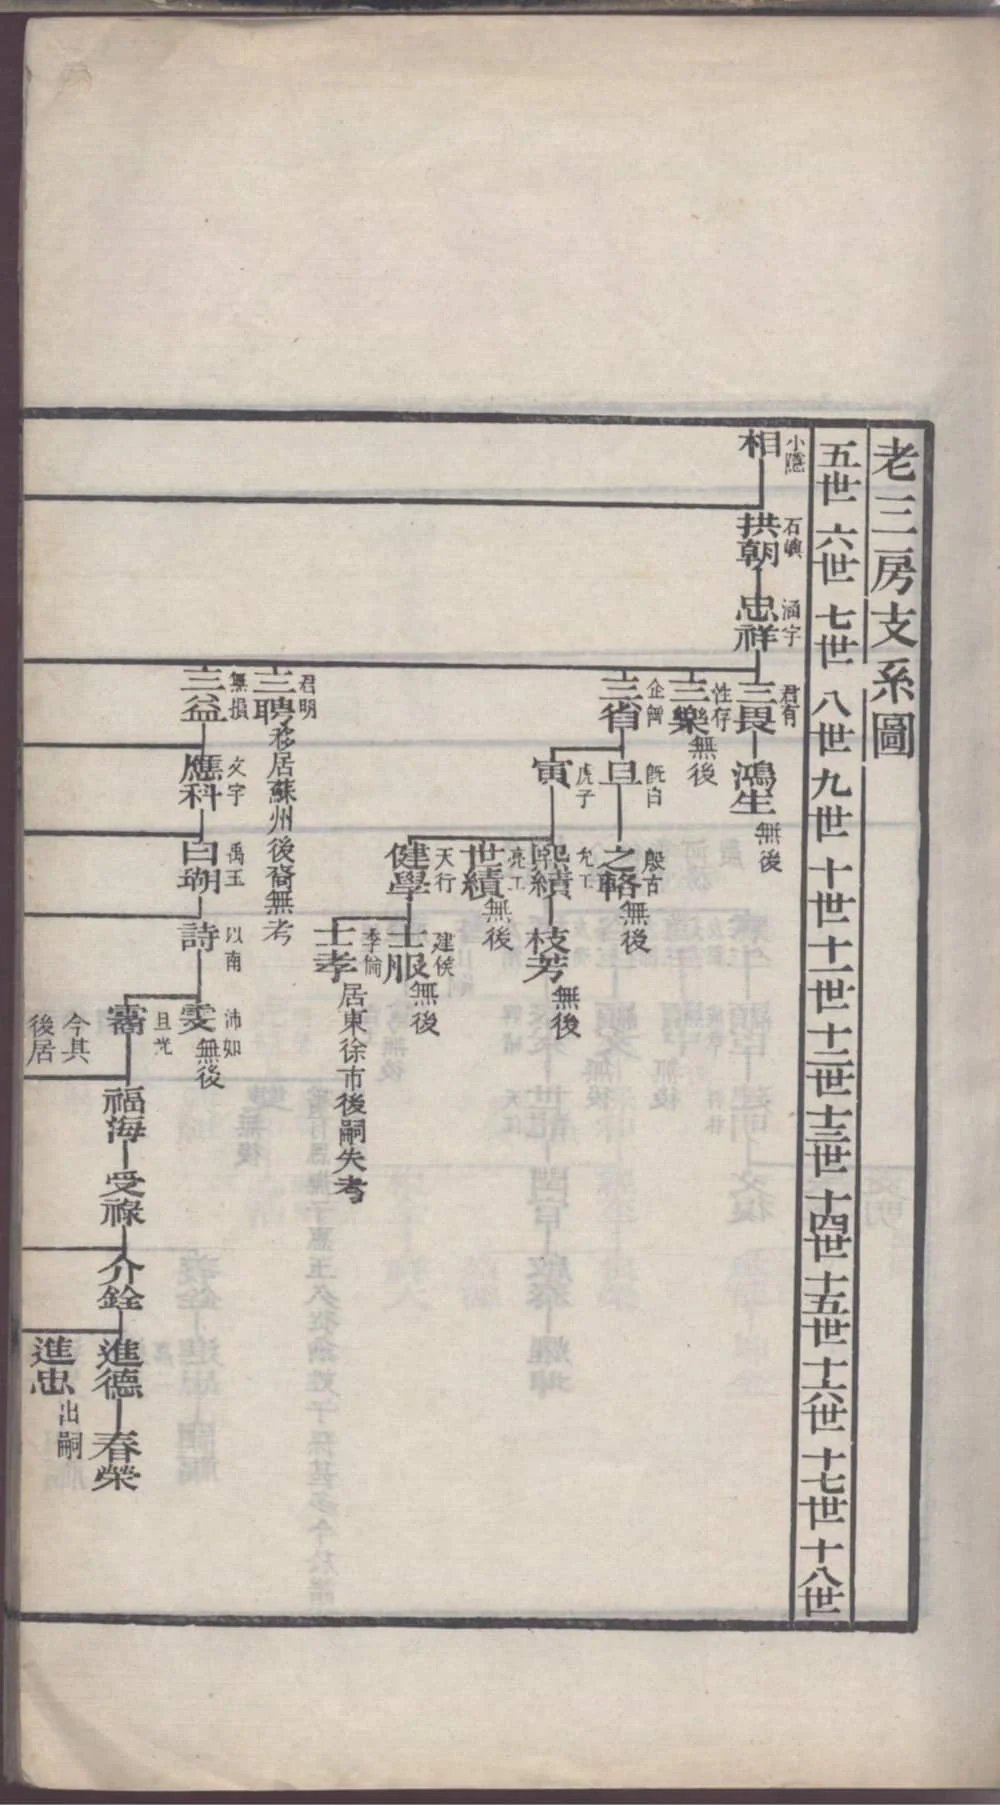 老三房支系圖
五世 六世 七世 八世 九世 十世 十一世 十二世 十三世 十四世 十五世 十六世 十七世 十八世
相 小隱
拱朝 石嶼
忠祥 涵宇
三畏 君有
鴻生 無後
三樂 性存 無後
三省 企曾
旦 旣白
之輅 殷古 無後
寅 虎子
熙績 允工
枝芳 無後
世績 亮工 無後
健學 天行
士服 建侯 無後
士孝 季倫 居東徐市後嗣失考
三聘 君明 移居蘇州後裔無考
三益 無損
應科 文宇
白瑚 禹玉
詩 以南
雯 沛如 無後
霱 且光
福海
受祿
介銓
進德
春榮
今其
後居
進忠 出嗣